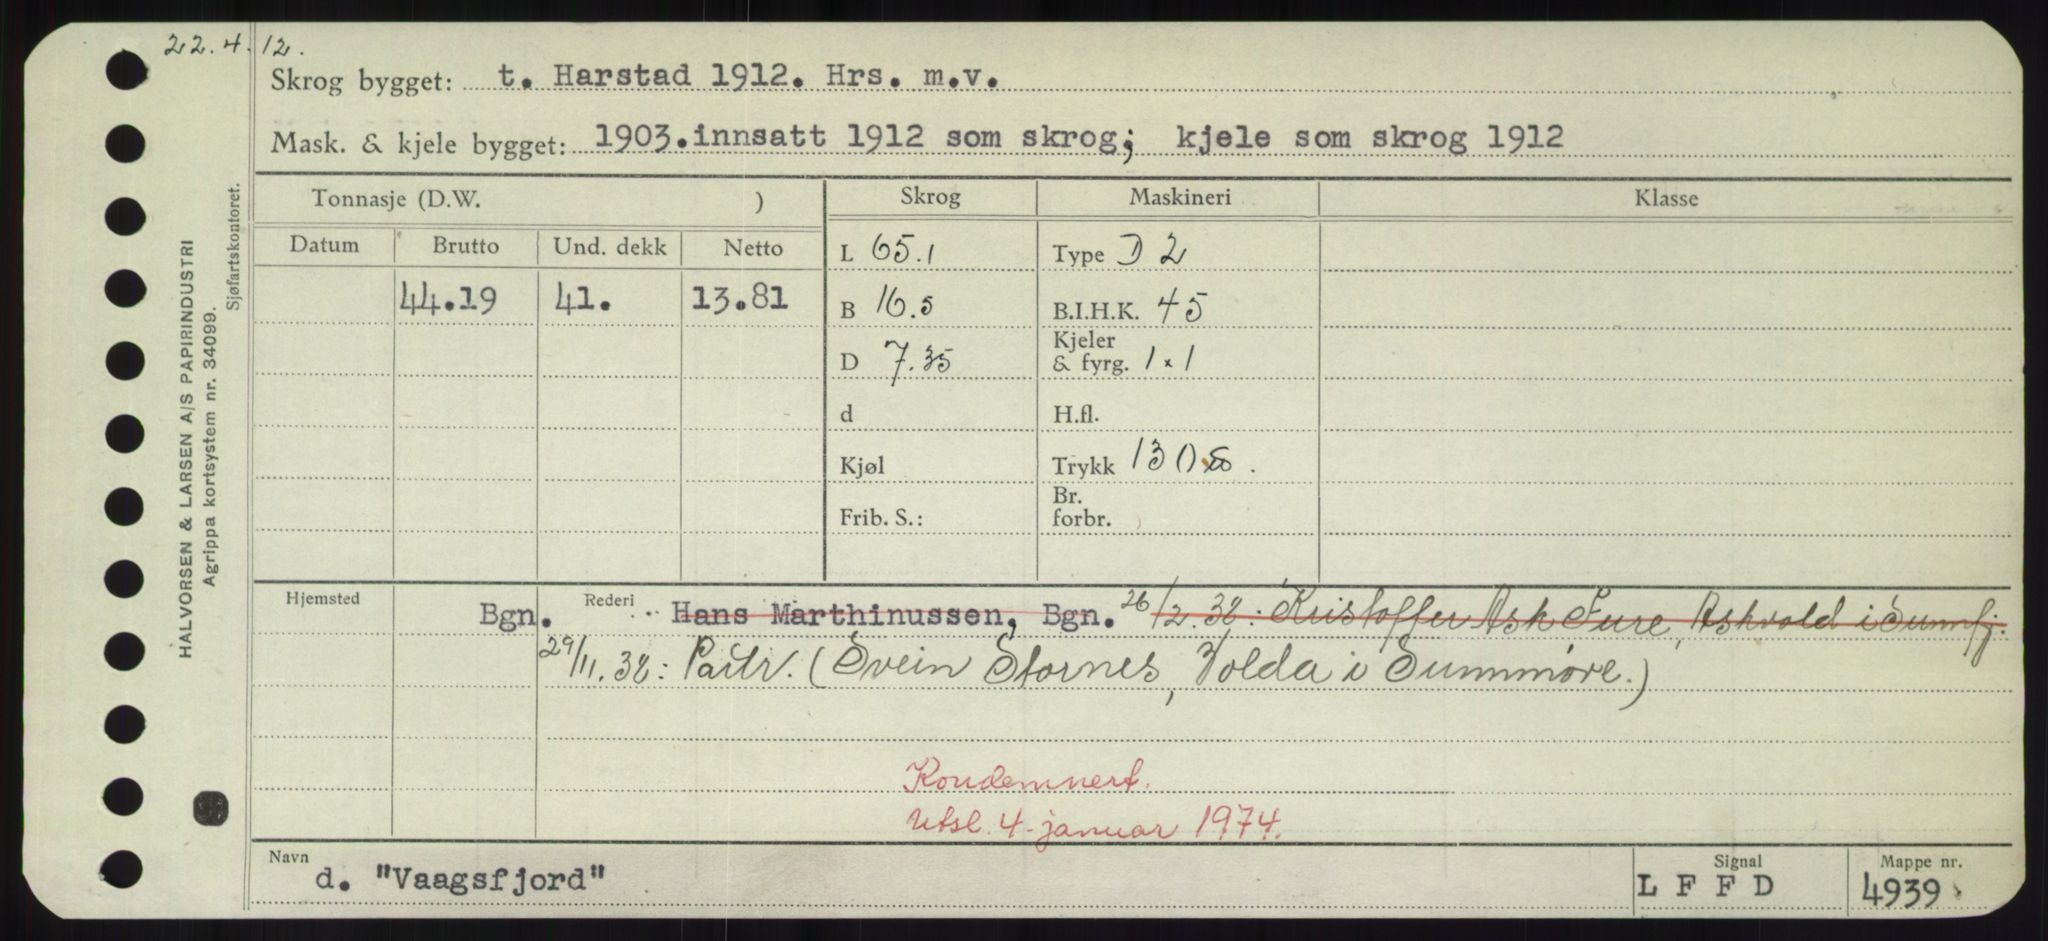 22.4.12.
Skrog bygget: t. Harstad 1912. Hrs. m.v.
Mask. & kjele bygget: 1903.innsatt 1912 som skrog; kjele som skrog 1912
Tonnasje (D.W. ) Skrog Maskineri Klasse
Datum Brutto Und. dekk Netto L 65.1 Type D 2
44.19 41. 13.81 B 16.5 B.I.H.K. 45
D 7.35 Kjeler & fyrg. 1 x 1
d H.fl.
Kjøl Trykk 130
Frib. S.: Br. forbr.
Hjemsted Bgn. Rederi Hans Marthinussen, Bgn. 26/2.38: Kristoffer Ask Fure, Askvold i Sunnfj.
29/11.38: Partr. (Svein Stornes, Volda i Sunnmøre.)
Kondemnert.
Utsl. 4. januar 1974.
Navn d. "Vaagsfjord" Signal L F F D Mappe nr. 4939
HALVORSEN & LARSEN A/S PAPIRINDUSTRI
Agrippa kortsystem nr. 34099.
Sjøfartskontoret.